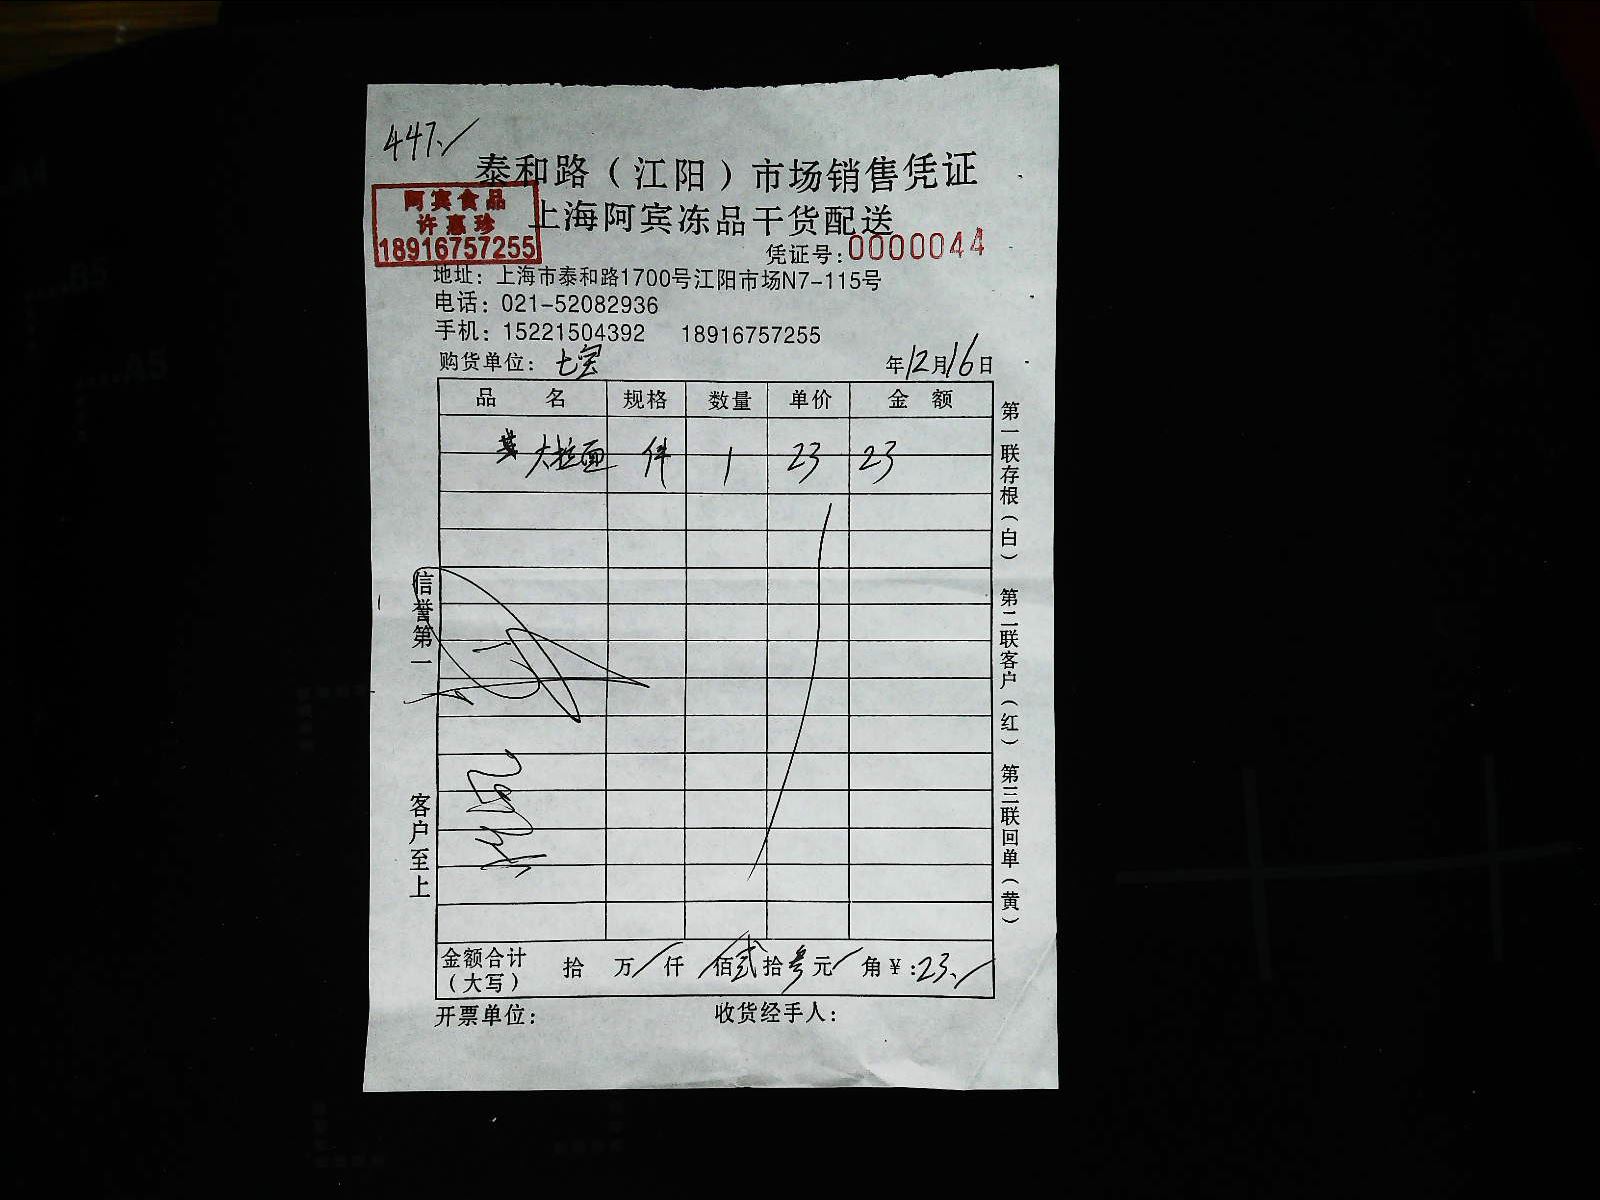 447./
泰和路（江阳）市场销售凭证
阿宾食品
许惠珍
18916757255
上海阿宾冻品干货配送
凭证号:0000044
地址：上海市泰和路1700号江阳市场N7-115号
电话：021-52082936
手机：15221504392 18916757255
购货单位：七宝 年12月16日
品名 规格 数量 单价 金额
大拉面 件 1 23 23
信誉第一
客户至上
第一联存根（白）
第二联客户（红）
第三联回单（黄）
金额合计（大写） 拾 万 仟 佰 贰拾叁元 角 ¥:23./
开票单位： 收货经手人：